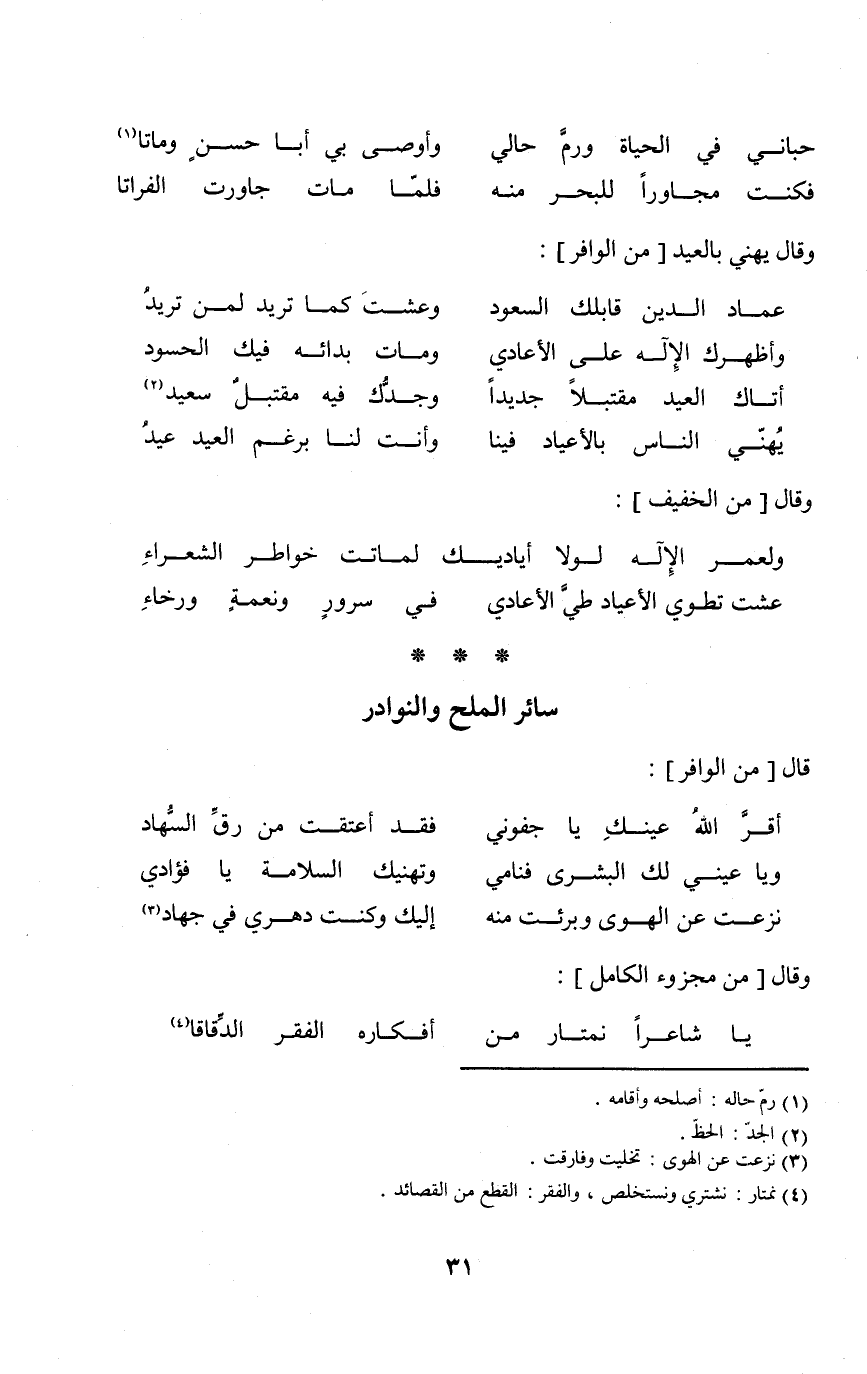 حباني في الحياة ورمَّ حالي وأوصى بي أبا حسنٍ وماتا(١)
فكنت مجاوراً للبحر منه فلمّا مات جاورت الفراتا
وقال يهني بالعيد [ من الوافر ] :
عماد الدين قابلك السعود وعشتَ كما تريد لمن تريدُ
وأظهرك الإِلَه على الأعادي ومات بدائه فيك الحسود
أتاك العيد مقتبلاً جديداً وجدُّك فيه مقتبلٌ سعيد(٢)
يُهنّي الناس بالأعياد فينا وأنت لنا برغم العيد عيدُ
وقال [ من الخفيف ] :
ولعمر الإِلَه لولا أياديك لماتت خواطر الشعراءِ
عشت تطوي الأعياد طيَّ الأعادي في سرورٍ ونعمةٍ ورخاءِ
* * *
سائر الملح والنوادر
قال [ من الوافر ] :
أقرَّ اللهُ عينكِ يا جفوني فقد أعتقت من رقِّ السُّهاد
ويا عيني لك البشرى فنامي وتهنيك السلامة يا فؤادي
نزعت عن الهوى وبرئت منه إليك وكنت دهري في جهاد(٣)
وقال [ من مجزوء الكامل ] :
يا شاعراً نمتار من أفكاره الفقر الدِّقاقا(٤)
(١) رمّ حاله : أصلحه وأقامه .
(٢) الجدّ : الحظّ .
(٣) نزعت عن الهوى : تخليت وفارقت .
(٤) نمتار : نشتري ونستخلص ، والفقر : القطع من القصائد .
٣١